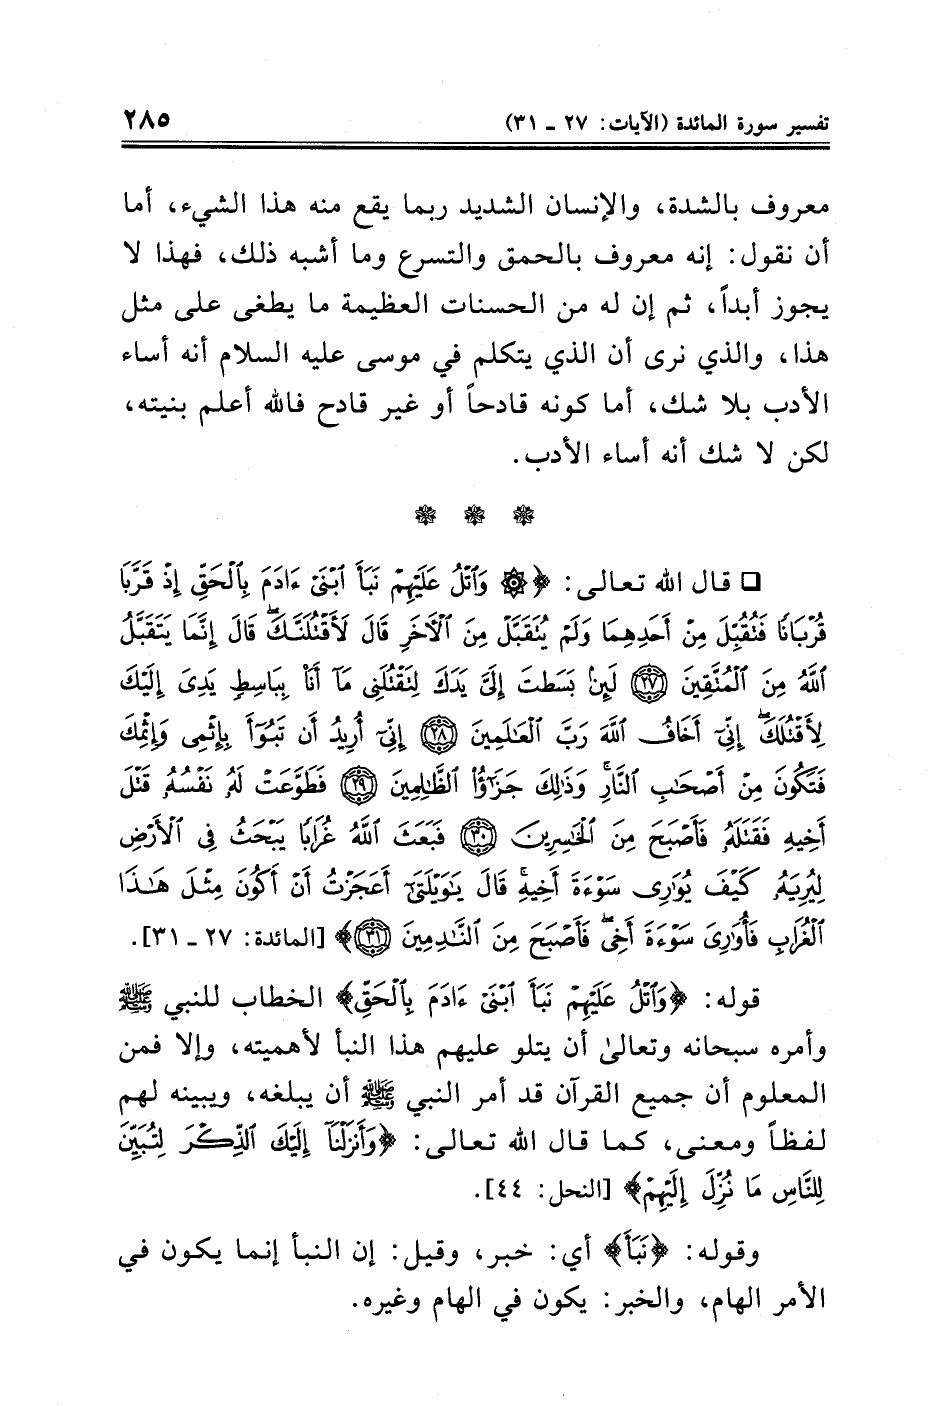 تفسير سورة المائدة (الآيات: ٢٧ ـ ٣١) ٢٨٥
معروف بالشدة، والإنسان الشديد ربما يقع منه هذا الشيء، أما
أن نقول: إنه معروف بالحمق والتسرع وما أشبه ذلك، فهذا لا
يجوز أبداً، ثم إن له من الحسنات العظيمة ما يطغى على مثل
هذا، والذي نرى أن الذي يتكلم في موسى عليه السلام أنه أساء
الأدب بلا شك، أما كونه قادحاً أو غير قادح فالله أعلم بنيته،
لكن لا شك أنه أساء الأدب.
❁ ❁ ❁
□ قال الله تعالى: ﴿۞ وَٱتۡلُ عَلَيۡهِمۡ نَبَأَ ٱبۡنَيۡ ءَادَمَ بِٱلۡحَقِّ إِذۡ قَرَّبَا
قُرۡبَانٗا فَتُقُبِّلَ مِنۡ أَحَدِهِمَا وَلَمۡ يُتَقَبَّلۡ مِنَ ٱلۡأٓخَرِ قَالَ لَأَقۡتُلَنَّكَۖ قَالَ إِنَّمَا يَتَقَبَّلُ
ٱللَّهُ مِنَ ٱلۡمُتَّقِينَ ٢٧ لَئِنۢ بَسَطتَ إِلَيَّ يَدَكَ لِتَقۡتُلَنِي مَآ أَنَا۠ بِبَاسِطٖ يَدِيَ إِلَيۡكَ
لِأَقۡتُلَكَۖ إِنِّيٓ أَخَافُ ٱللَّهَ رَبَّ ٱلۡعَٰلَمِينَ ٢٨ إِنِّيٓ أُرِيدُ أَن تَبُوٓأَ بِإِثۡمِي وَإِثۡمِكَ
فَتَكُونَ مِنۡ أَصۡحَٰبِ ٱلنَّارِۚ وَذَٰلِكَ جَزَٰٓؤُاْ ٱلظَّٰلِمِينَ ٢٩ فَطَوَّعَتۡ لَهُۥ نَفۡسُهُۥ قَتۡلَ
أَخِيهِ فَقَتَلَهُۥ فَأَصۡبَحَ مِنَ ٱلۡخَٰسِرِينَ ٣٠ فَبَعَثَ ٱللَّهُ غُرَابٗا يَبۡحَثُ فِي ٱلۡأَرۡضِ
لِيُرِيَهُۥ كَيۡفَ يُوَٰرِي سَوۡءَةَ أَخِيهِۚ قَالَ يَٰوَيۡلَتَىٰٓ أَعَجَزۡتُ أَنۡ أَكُونَ مِثۡلَ هَٰذَا
ٱلۡغُرَابِ فَأُوَٰرِيَ سَوۡءَةَ أَخِيۖ فَأَصۡبَحَ مِنَ ٱلنَّٰدِمِينَ ٣١﴾ [المائدة: ٢٧ ـ ٣١].
قوله: ﴿وَٱتۡلُ عَلَيۡهِمۡ نَبَأَ ٱبۡنَيۡ ءَادَمَ بِٱلۡحَقِّ﴾ الخطاب للنبي ﷺ
وأمره سبحانه وتعالىٰ أن يتلو عليهم هذا النبأ لأهميته، وإلا فمن
المعلوم أن جميع القرآن قد أمر النبي ﷺ أن يبلغه، ويبينه لهم
لفظاً ومعنى، كما قال الله تعالى: ﴿وَأَنزَلۡنَآ إِلَيۡكَ ٱلذِّكۡرَ لِتُبَيِّنَ
لِلنَّاسِ مَا نُزِّلَ إِلَيۡهِمۡ﴾ [النحل: ٤٤].
وقوله: ﴿نَبَأَ﴾ أي: خبر، وقيل: إن النبأ إنما يكون في
الأمر الهام، والخبر: يكون في الهام وغيره.